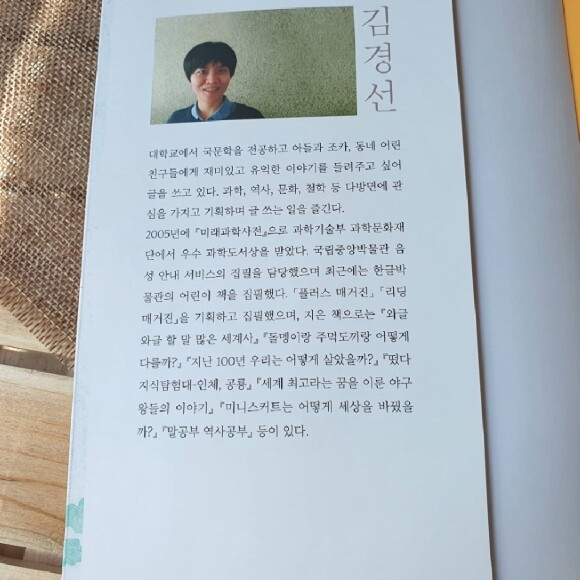 김경선
대학교에서 국문학을 전공하고 아들과 조카, 동네 어린
친구들에게 재미있고 유익한 이야기를 들려주고 싶어
글을 쓰고 있다. 과학, 역사, 문화, 철학 등 다방면에 관
심을 가지고 기획하며 글 쓰는 일을 즐긴다.
2005년에 『미래과학사전』으로 과학기술부 과학문화재
단에서 우수 과학도서상을 받았다. 국립중앙박물관 음
성 안내 서비스의 집필을 담당했으며 최근에는 한글박
물관의 어린이 책을 집필했다. 「플러스 매거진」 「리딩
매거진」을 기획하고 집필했으며, 지은 책으로는 『와글
와글 할 말 많은 세계사』 『돌멩이랑 주먹도끼랑 어떻게
다를까?』 『지난 100년 우리는 어떻게 살았을까?』 『떴다
지식탐험대-인체, 공룡』 『세계 최고라는 꿈을 이룬 야구
왕들의 이야기』 『미니스커트는 어떻게 세상을 바꿨을
까?』 『말공부 역사공부』 등이 있다.